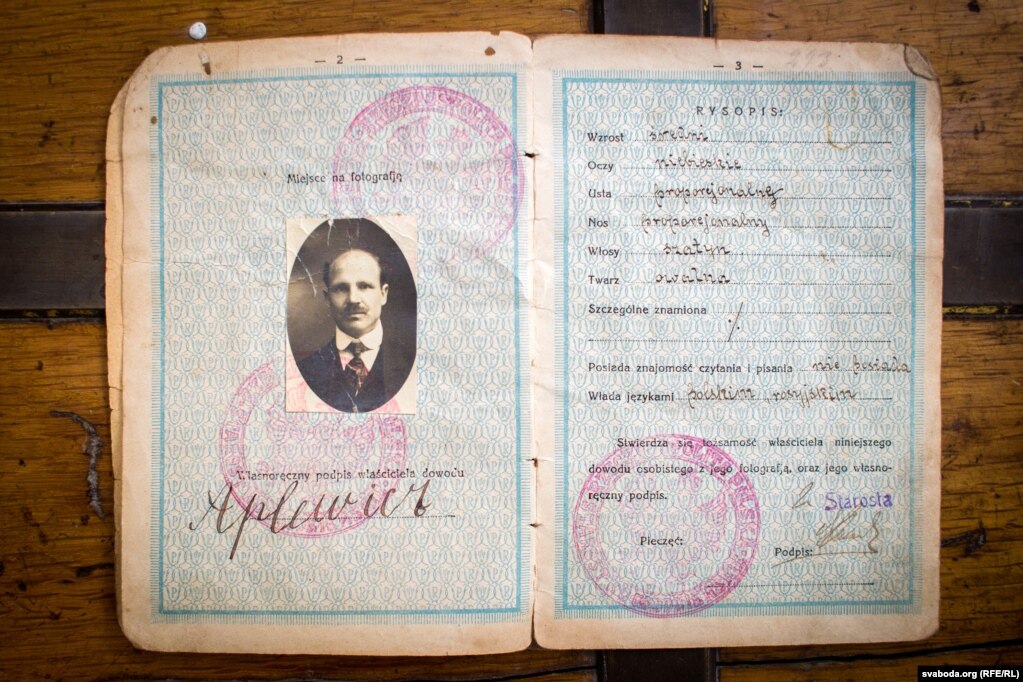 — 2 —
Miejsce na fotografję
Własnoręczny podpis właściciela dowodu
Aplewicz
— 3 —
RYSOPIS:
Wzrost średni
Oczy niebieskie
Usta proporcjonalne
Nos proporcjonalny
Włosy szatyn
Twarz owalna
Szczególne znamiona
·/·
Posiada znajomość czytania i pisania nie posiada
Włada językami polskim, rosyjskim
Stwierdza się tożsamość właściciela niniejszego
dowodu osobistego z jego fotografją, oraz jego własno-
ręczny podpis.
Starosta
Pieczęć:
Podpis:
svaboda.org (RFE/RL)